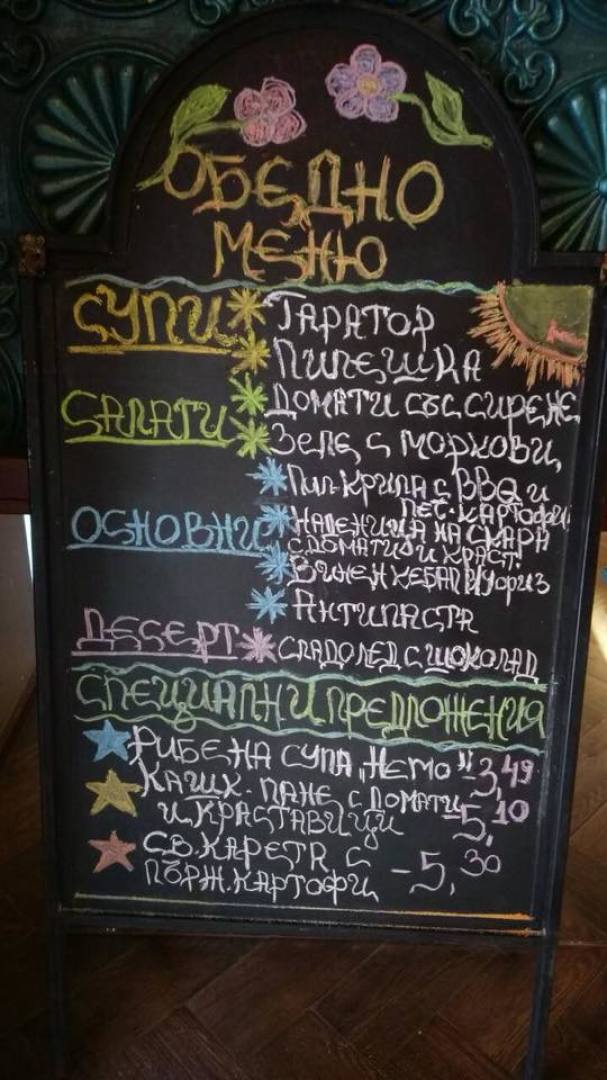 ОБЕДНО
МЕНЮ
СУПИ * ТАРАТОР
* ПИЛЕШКА
САЛАТИ * ДОМАТИ СЪС СИРЕНЕ
* ЗЕЛЕ С МОРКОВИ
* ПИЛ. КРИЛА С BBQ И
ПЕЧ. КАРТОФИ
ОСНОВНИ * НАДЕНИЦА НА СКАРА
С ДОМАТИ И КРАСТ.
* ВИНЕН КЕБАП И ОРИЗ
* АНТИПАСТА
ДЕСЕРТ * СЛАДОЛЕД С ШОКОЛАД
СПЕЦИАЛНИ ПРЕДЛОЖЕНИЯ
РИБЕНА СУПА „НЕМО" - 3,49
КАШК. ПАНЕ С ДОМАТИ
И КРАСТАВИЦИ - 5,10
СВ. КАРЕТА С
ПЪРЖ. КАРТОФИ - 5,30